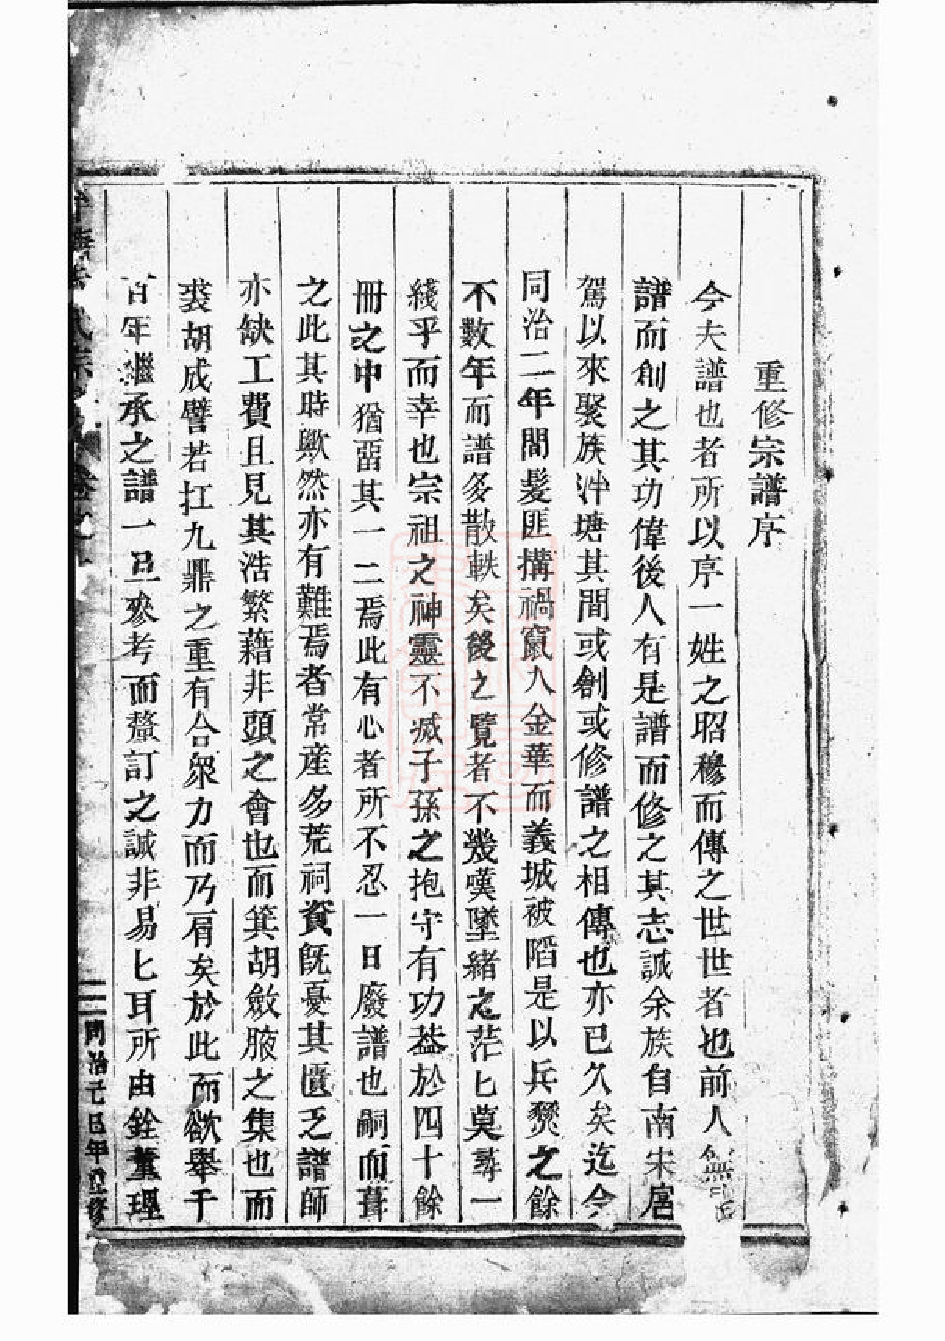 重修宗譜序
今夫譜也者所以序一姓之昭穆而傳之世世者也前人無是
譜而創之其功偉後人有是譜而修之其志誠余族自南宋扈
駕以來聚族沖塘其間或創或修譜之相傳也亦已久矣迄今
同治二年間髮匪搆禍竄入金華而義城被陷是以兵燹之餘
不數年而譜多散軼矣後之覽者不幾嘆墜緒之茫匕莫尋一
綫乎而幸也宗祖之神靈不滅子孫之抱守有功葢於四十餘
冊之中猶畱其一二焉此有心者所不忍一日廢譜也嗣而葺
之此其時歟然亦有難焉者常産多荒祠資既憂其匱乏譜師
亦缺工費且見其浩繁藉非頭之會也而箕胡斂腋之集也而
裘胡成譬若扛九鼎之重有合衆力而乃肩矣於此而欲舉千
百年繼承之譜一旦叅考而釐訂之誠非易匕耳所由銓董理
氏宗 卷之 同治己巳年重修